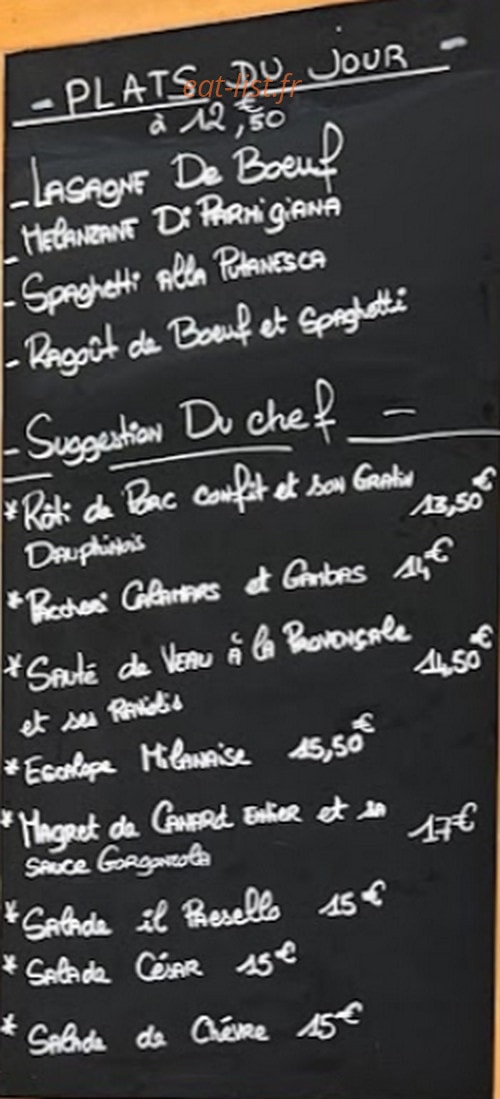 - PLATS DU JOUR -
eat-list.fr
à 12,50 €
- LASAGNE De Boeuf
- MELANZANE Di PARMigiANA
- Spaghetti Alla PutANESCA
- Ragoût de Boeuf et Spaghetti
- Suggestion Du chef -
* Rôti de Porc confit et son Gratin 13,50€
Dauphinois
* Paccheri CALAMARS et GAMBAS 14€
* SAUté de VEAU à la PROVENÇALE 14,50€
et ses RAViolis
* EscAlope MilANAise 15,50€
* MAgret de CANARD ENtier et sa 17€
SAUCE GORGONzola
* SAlade il PAesello 15€
* SAlade CÉSAR 15€
* SAlade de Chèvre 15€